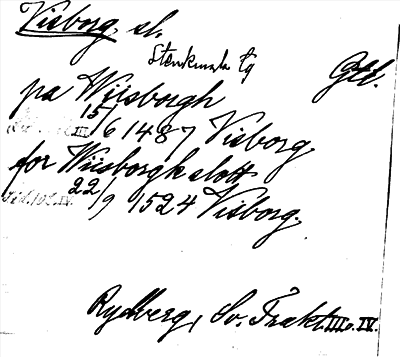 Visborg, sl.
Stenkumla tg
Gtl.
pa Wiisborgh
15/6 1487 Visborg
for Wiisborghslott
22/9 1524 Visborg.
Rydberg, Sv. Trakt. III o. IV.